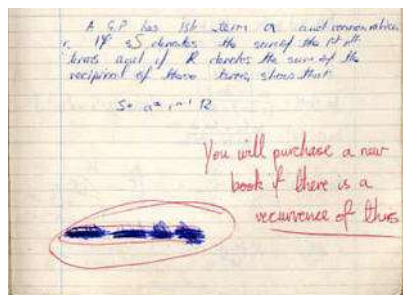 A G.P has 1st term a and common ratio
r. If S denotes the sum of the 1st n
terms and if R denotes the sum of the
reciprocal of these terms, show that
S = a² rⁿ⁻¹ R
You will purchase a new
book if there is a
recurrence of this